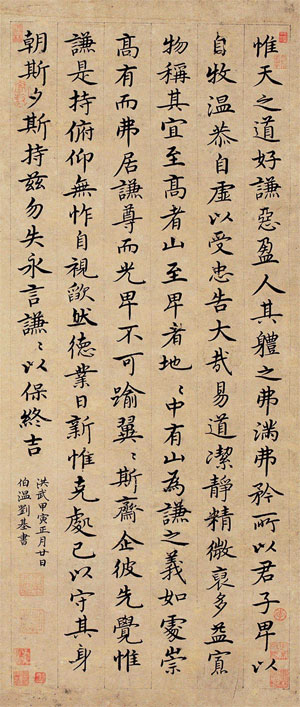 惟天之道好謙惡盈人其軆之弗滿弗矜所以君子卑以
自牧温恭自虛以受忠告大哉易道潔靜精微裒多益寡
物稱其宜至髙者山至卑者地〻中有山為謙之義如處崇
髙有而弗居謙尊而光卑不可踰翼〻斯齋企彼先覺惟
謙是持俯仰無怍自視欿然徳業日新惟克處己以守其身
朝斯夕斯持兹勿失永言謙〻以保終吉
洪武甲寅正月廿日
伯温劉基書